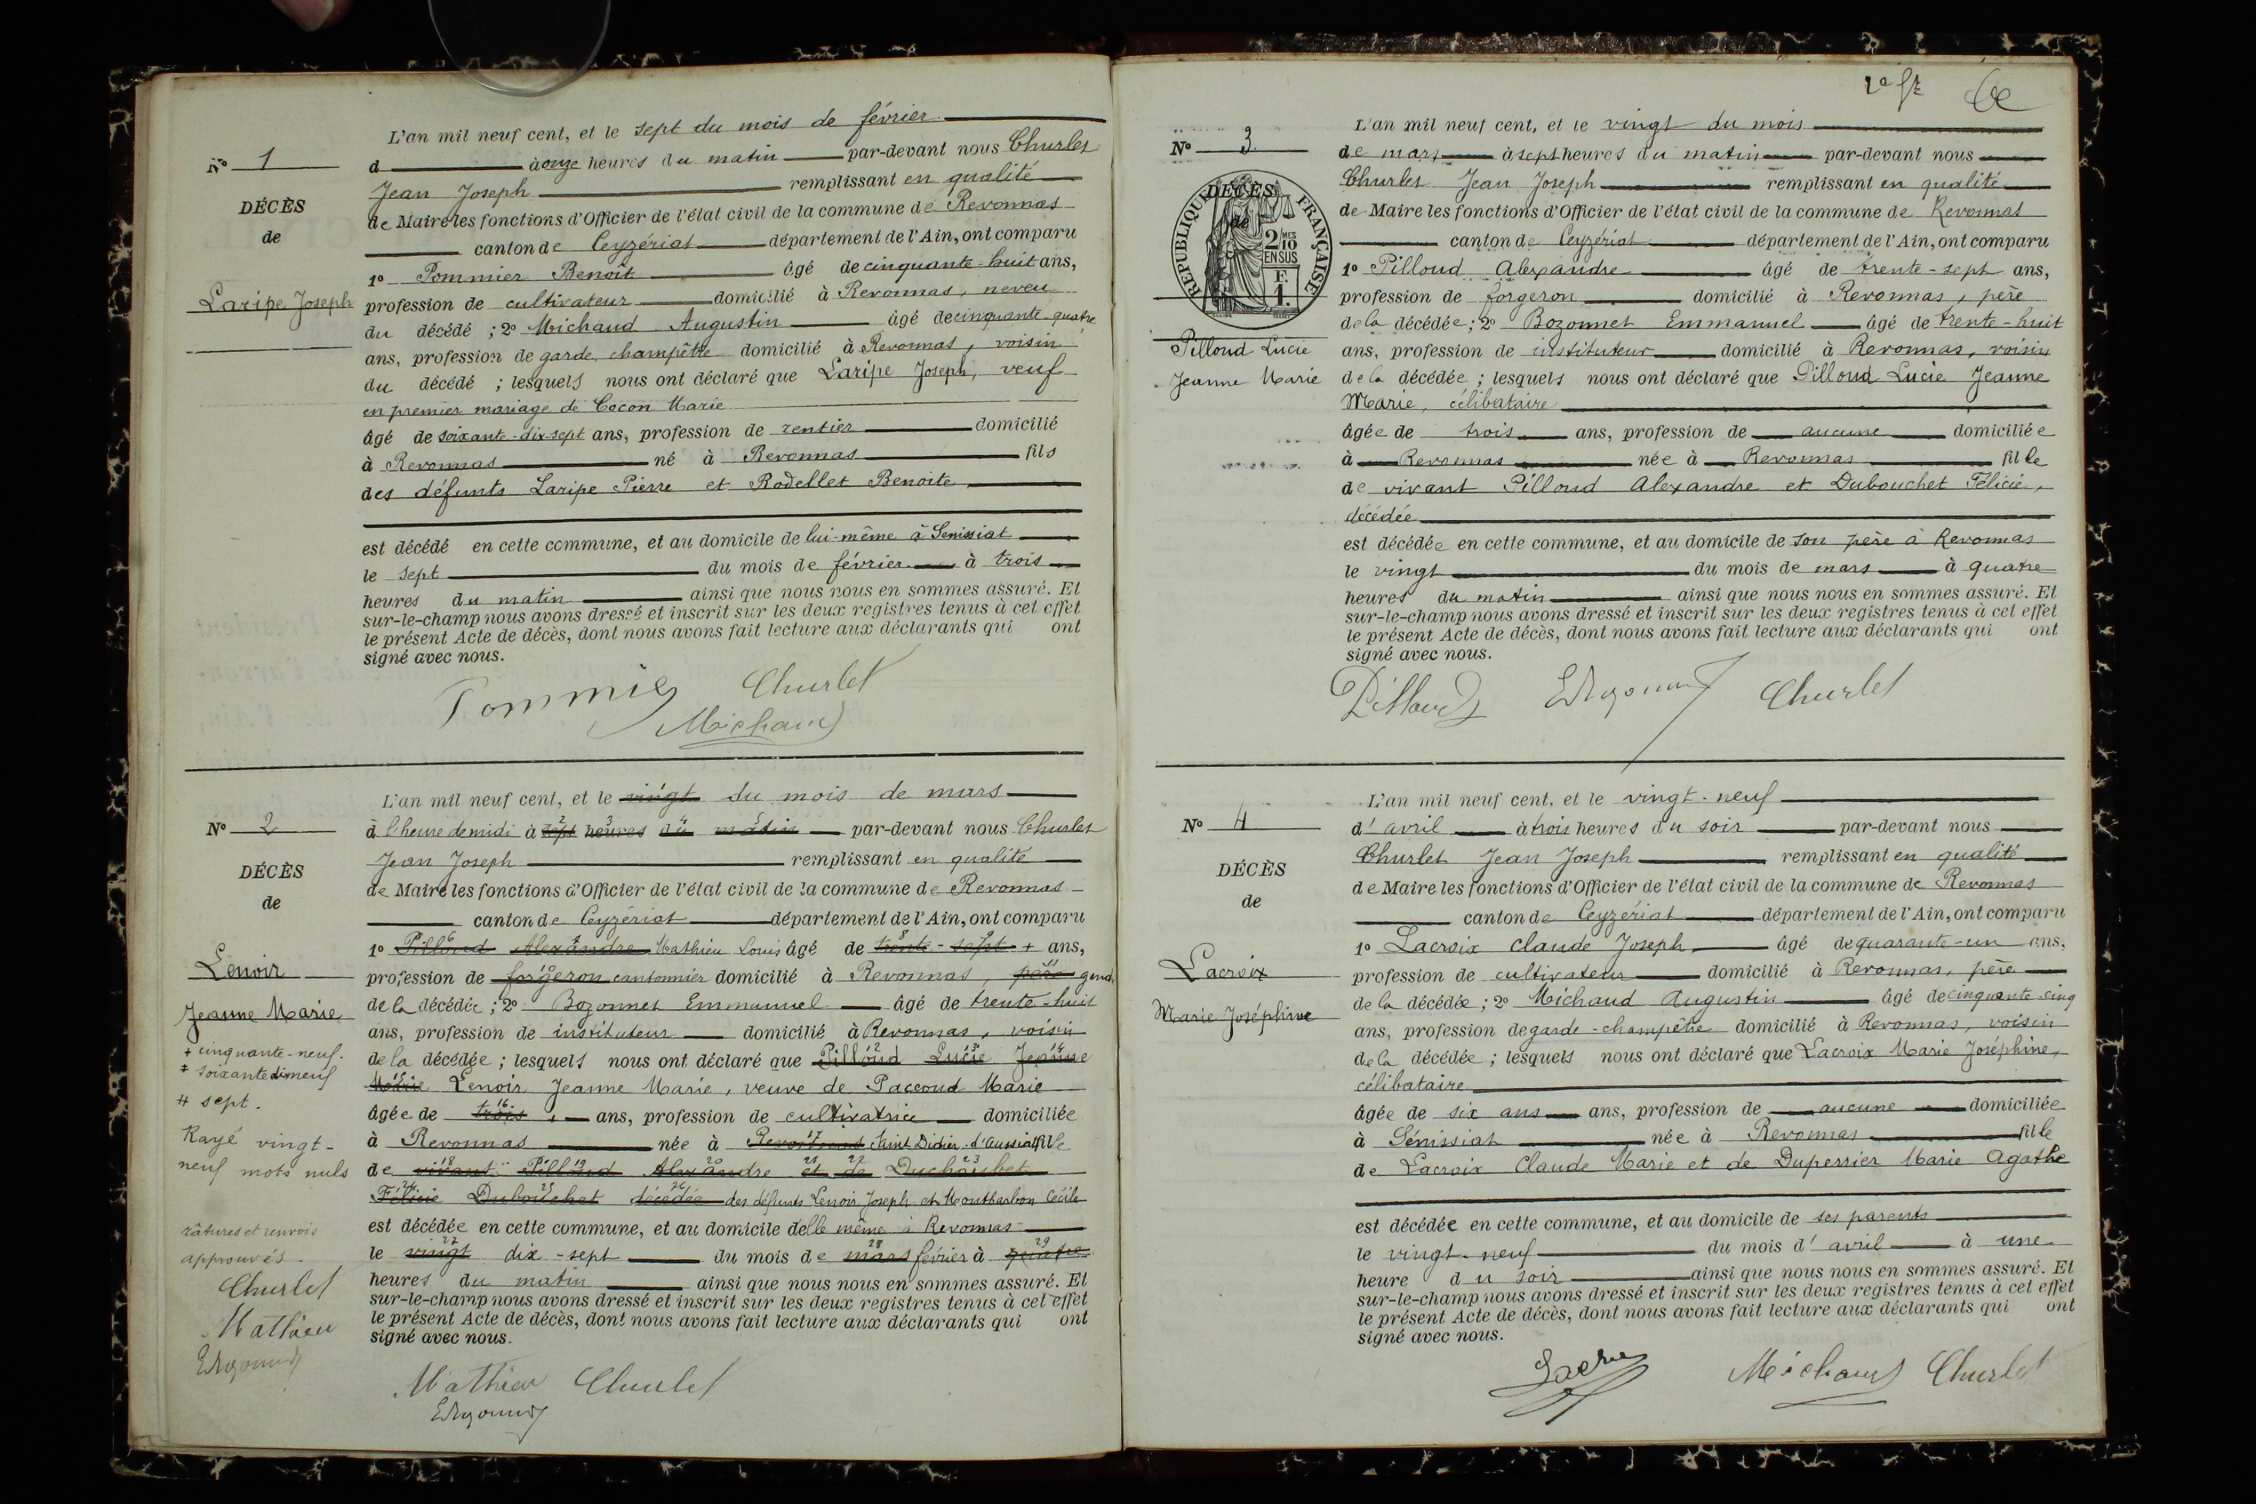 L'an mil neuf cent, et le sept du mois de février
Nº 1
d à onze heures du matin par-devant nous Churlet
Jean Joseph remplissant en qualité
DÉCÈS
de Maire les fonctions d'Officier de l'état civil de la commune de Revonnas
de
canton de Ceyzériat département de l'Ain, ont comparu
1º Pommier Benoît âgé de cinquante-huit ans,
Laripe Joseph
profession de cultivateur domicilié à Revonnas, neveu
du décédé ; 2º Michaud Augustin âgé de cinquante-quatre
ans, profession de garde champêtre domicilié à Revonnas, voisin
du décédé ; lesquels nous ont déclaré que Laripe Joseph, veuf
en premier mariage de Cocon Marie
âgé de soixante-dix-sept ans, profession de rentier domicilié
à Revonnas né à Revonnas fils
des défunts Laripe Pierre et Rodellet Benoite,
est décédé en cette commune, et au domicile de lui-même à Senissiat
le sept du mois de février à trois
heures du matin ainsi que nous nous en sommes assuré. Et
sur-le-champ nous avons dressé et inscrit sur les deux registres tenus à cet effet
le présent Acte de décès, dont nous avons fait lecture aux déclarants qui ont
signé avec nous.
Pommier Churlet
Michaud
L'an mil neuf cent, et le vingt du mois de mars
Nº 2
à l'heure de midi à sept heures du matin par-devant nous Churlet
Jean Joseph remplissant en qualité
DÉCÈS
de Maire les fonctions d'Officier de l'état civil de la commune de Revonnas
de
canton de Ceyzériat département de l'Ain, ont comparu
1º Pilloud Alexandre Mathieu Louis âgé de trente-sept + ans,
Lenoir
profession de forgeron cantonnier domicilié à Revonnas, père gend.
Jeanne Marie
de la décédée ; 2º Bozonnet Emmanuel âgé de trente-huit
ans, profession de instituteur domicilié à Revonnas, voisin
+ cinquante-neuf.
de la décédée ; lesquels nous ont déclaré que Pilloud Lucie Jeanne
‡ soixante dix neuf
Marie Lenoir Jeanne Marie, veuve de Pacoud Marie
# sept.
âgée de trois ans, profession de cultivatrice domiciliée
Rayé vingt-
à Revonnas née à Revonnas Saint Didier-d'Aussiat fille
neuf mots nuls
de vivant Pilloud Alexandre et de Duchoubet
Félicie Dubouchet décédée des défunts Lenoir Joseph et Montbarbon Cécile
râtures et renvois
est décédée en cette commune, et au domicile d'elle même à Revonnas
approuvés.
le vingt dix-sept du mois de mars février à quatre
heures du matin ainsi que nous nous en sommes assuré. Et
Churlet
sur-le-champ nous avons dressé et inscrit sur les deux registres tenus à cet effet
le présent Acte de décès, dont nous avons fait lecture aux déclarants qui ont
Mathieu
signé avec nous.
EBozonnet
Mathieu Churlet
EBozonnet
L'an mil neuf cent, et le vingt du mois
Nº 3
de mars à sept heures du matin par-devant nous
Churlet Jean Joseph remplissant en qualité
DÉCÈS
RÉPUBLIQUE FRANÇAISE
de Maire les fonctions d'Officier de l'état civil de la commune de Revonnas
de
2 MES
10
EN SUS
F.
1.
canton de Ceyzériat département de l'Ain, ont comparu
1º Pilloud Alexandre âgé de trente-sept ans,
profession de forgeron domicilié à Revonnas, père
de la décédée ; 2º Bozonnet Emmanuel âgé de trente-huit
Pilloud Lucie
ans, profession de instituteur domicilié à Revonnas, voisin
Jeanne Marie
de la décédée ; lesquels nous ont déclaré que Pilloud Lucie Jeanne
Marie, célibataire
âgée de trois ans, profession de aucune domiciliée
à Revonnas née à Revonnas fille
de vivant Pilloud Alexandre et Dubouchet Félicie,
décédée
est décédée en cette commune, et au domicile de son père à Revonnas
le vingt du mois de mars à quatre
heures du matin ainsi que nous nous en sommes assuré. Et
sur-le-champ nous avons dressé et inscrit sur les deux registres tenus à cet effet
le présent Acte de décès, dont nous avons fait lecture aux déclarants qui ont
signé avec nous.
Pilloud EBozonnet Churlet
L'an mil neuf cent, et le vingt-neuf
Nº 4
d'avril à trois heures du soir par-devant nous
Churlet Jean Joseph remplissant en qualité
DÉCÈS
de Maire les fonctions d'Officier de l'état civil de la commune de Revonnas
de
canton de Ceyzériat département de l'Ain, ont comparu
1º Lacroix Claude Joseph, âgé de quarante-un ans,
Lacroix
profession de cultivateur domicilié à Revonnas, père
Marie Joséphine
de la décédée ; 2º Michaud Augustin âgé de cinquante-cinq
ans, profession de garde-champêtre domicilié à Revonnas, voisin
de la décédée ; lesquels nous ont déclaré que Lacroix Marie Joséphine,
célibataire
âgée de six ans ans, profession de aucune domiciliée
à Sénissiat née à Revonnas fille
de Lacroix Claude Marie et de Duperrier Marie Agathe
est décédée en cette commune, et au domicile de ses parents
le vingt-neuf du mois d'avril à une
heure du soir ainsi que nous nous en sommes assuré. Et
sur-le-champ nous avons dressé et inscrit sur les deux registres tenus à cet effet
le présent Acte de décès, dont nous avons fait lecture aux déclarants qui ont
signé avec nous.
Lacroix Michaud Churlet